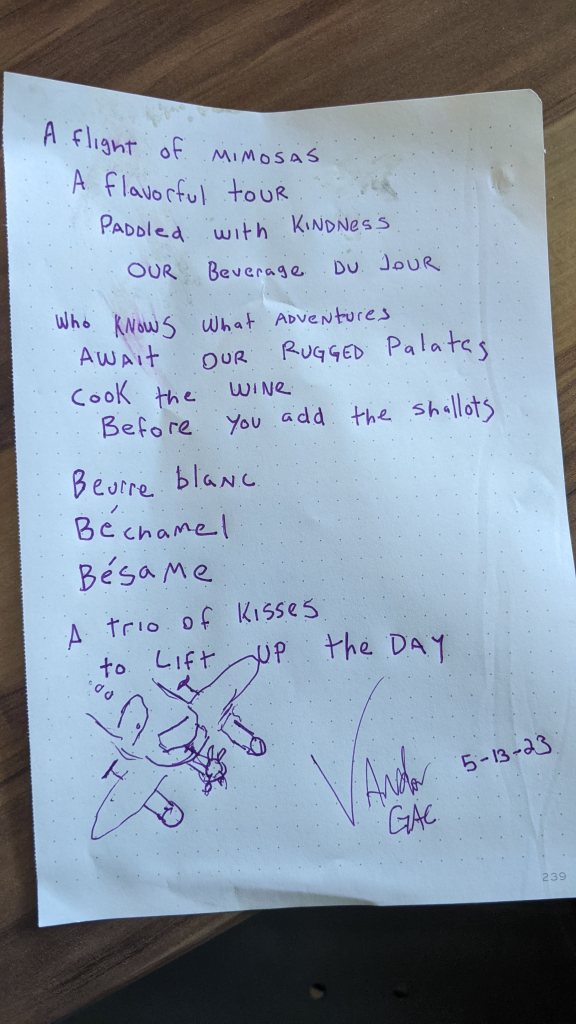 A flight of MIMOSAS
A flavorful tour
PADDled with KINDNess
OUR Beverage DU JOUR
Who KNOWS what ADVENtURES
AWAIt OUR RUGGED Palates
Cook the WINE
Before you add the shallots
Beurre blanc
Béchamel
Bésame
A trio of Kisses
to Lift UP the DAY
5-13-23
GAC
239